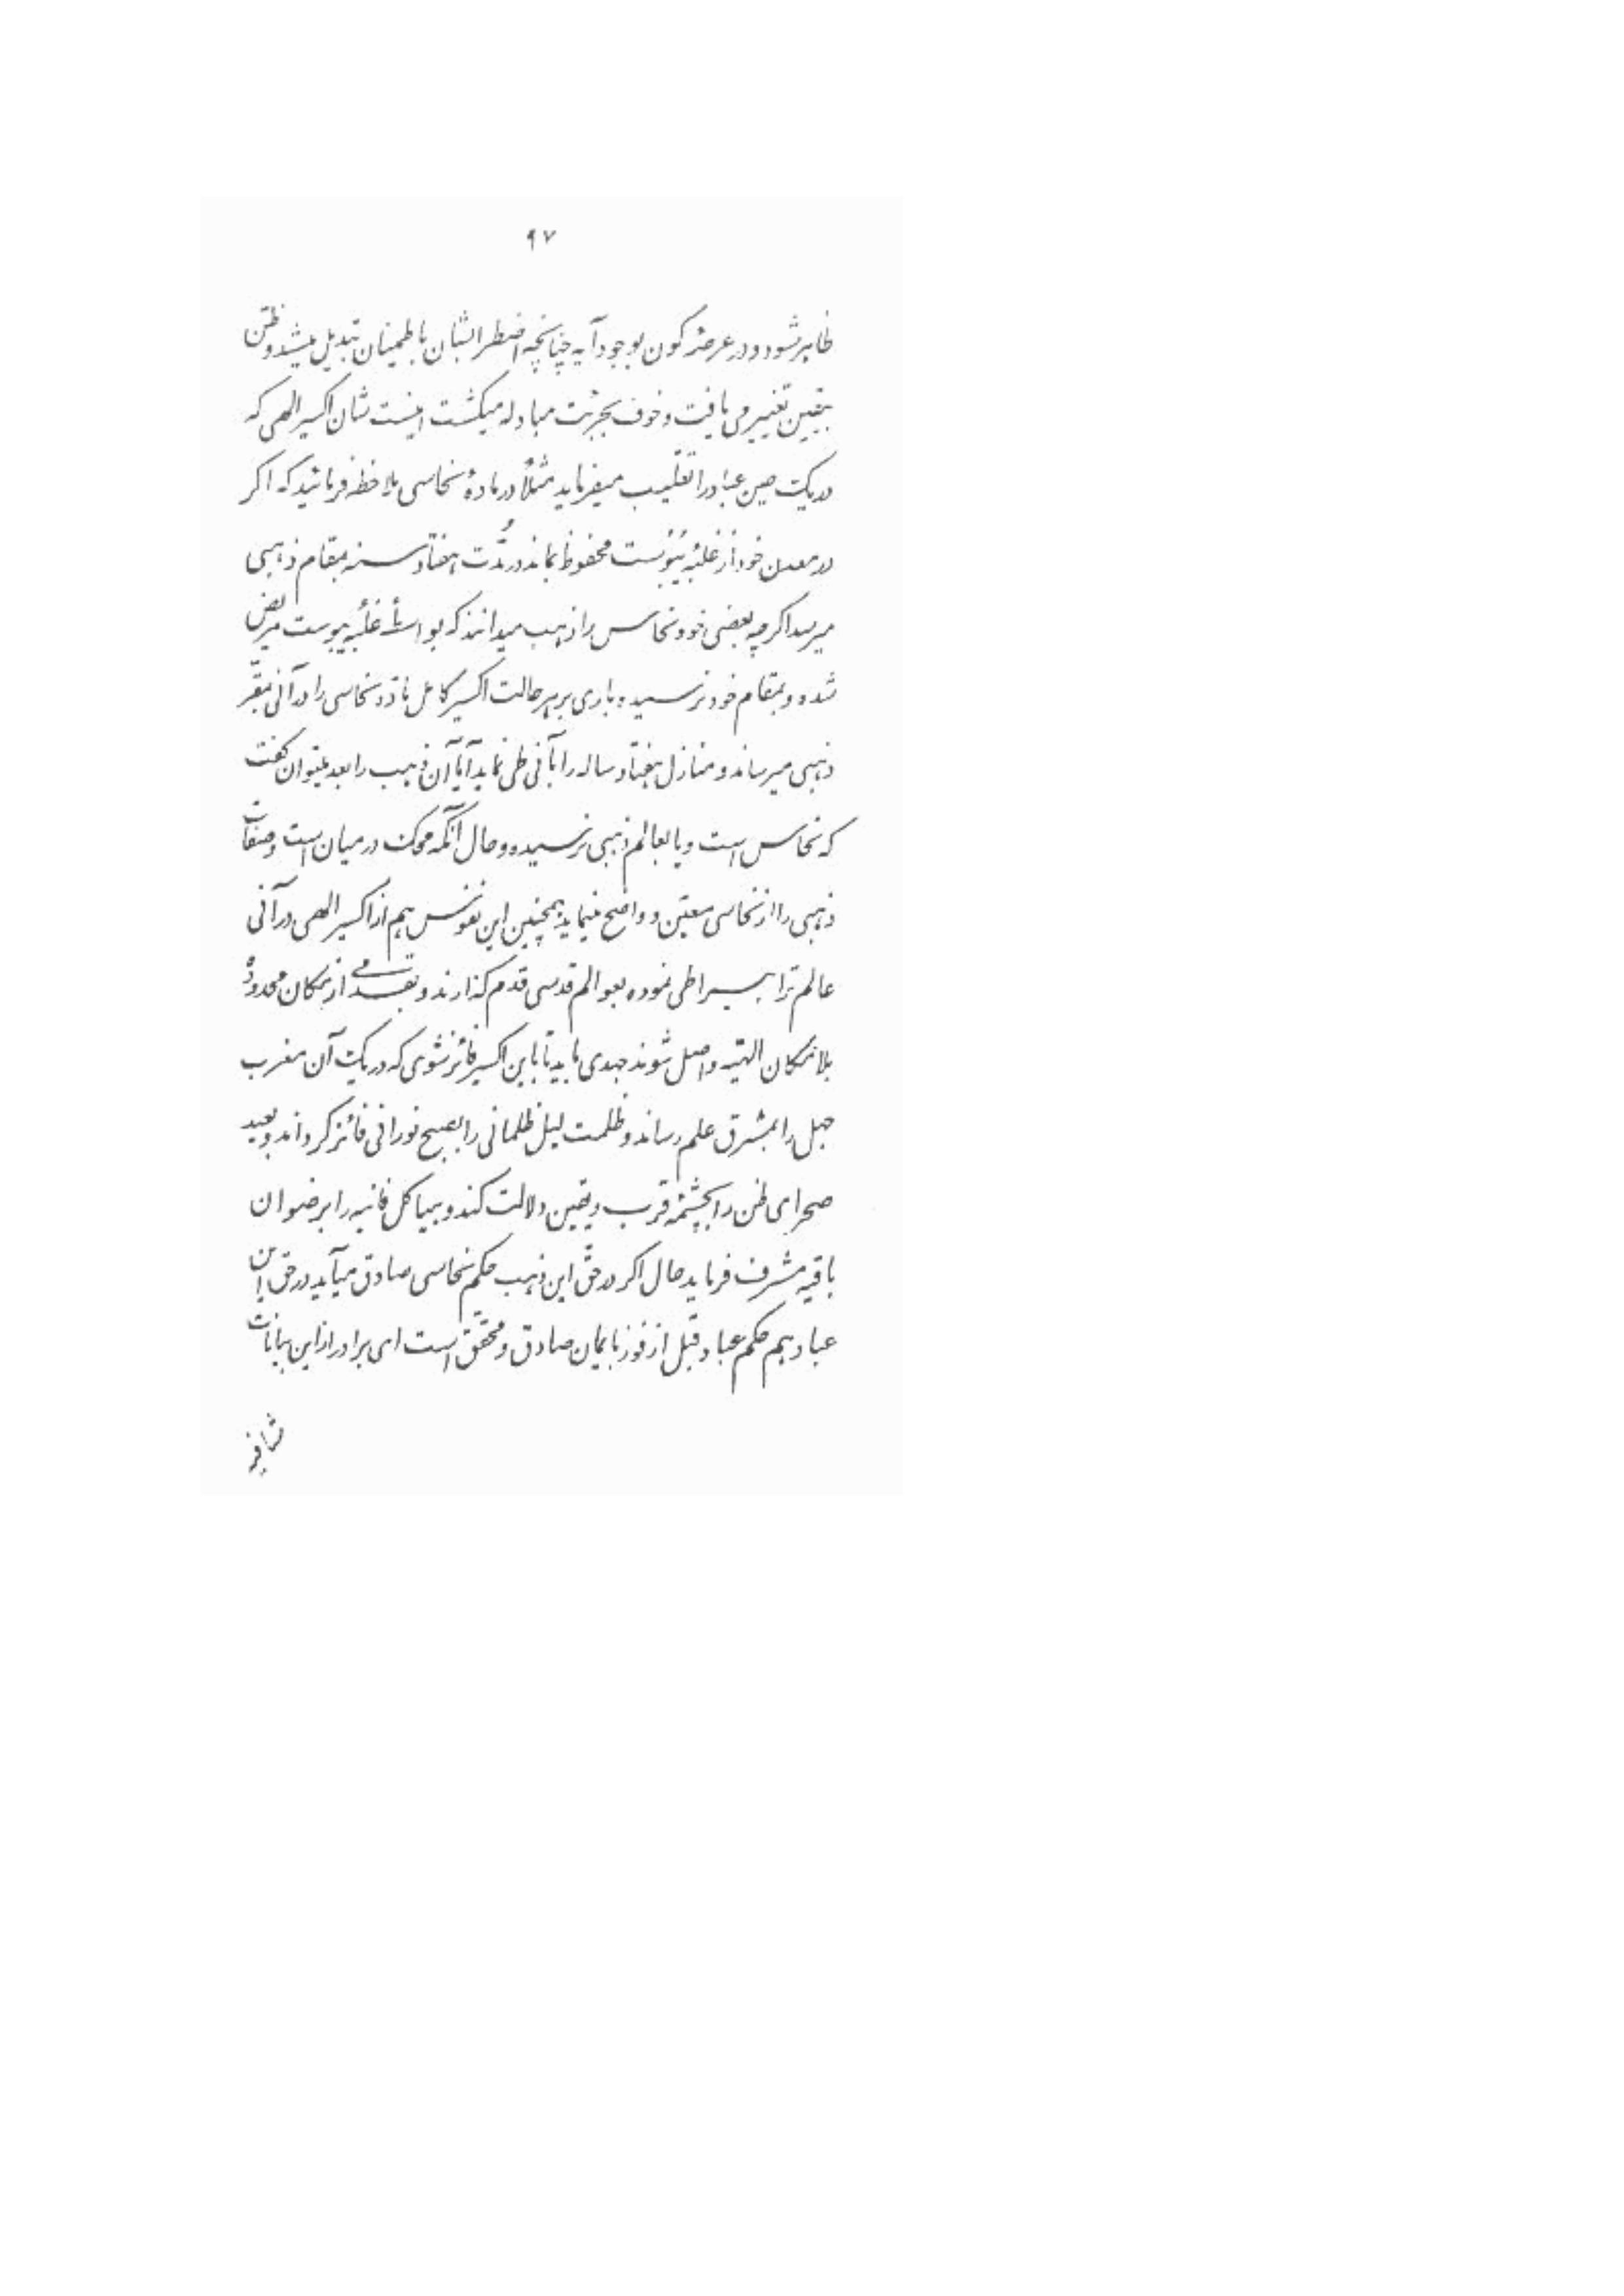 ۹۷
ظاهر شود و در عرصهٔ کون بوجود آید چنانچه اضطرابشان باطمینان تبدیل میشد و ظنّ
بیقین تغییر می یافت و خوف بجرئت مبادله میکشت اینست شان اکسیر الهی که
در یک حین عباد را تقلیب میفرماید مثلاً در مادهٔ نحاسی ملاحظه فرمائید که اکر
در معدن خود از غلبهٔ یبوست محفوظ بماند در مدّت هفتاد سنه بمقام ذهبی
میرسد اکرچه بعضی خود نحاس را ذهب میدانند که بواسطهٔ غلبهٔ یبوست مریض
شده و بمقام خود نرسیده و باری بر هر حالت اکسیر کامل مادّه نحاسی را در آنی بمقرّ
ذهبی میرساند و منازل هفتاد ساله را بآنی طی نماید آیا آن ذهب را بعد میتوان کفت
که نحاس است و یا بعالم ذهبی نرسیده و حال آنکه محک در میان است و صفات
ذهبی را از نحاسی معیّن و واضح مینماید همچنین این نفوس هم از اکسیر الهی در آنی
عالم ترابی را طی نموده بعوالم قدسی قدم کذارند و بقدمی از مکان محدود
بلامکان الهیّه واصل شوند جهدی باید تا باین اکسیر فائز شوی که در یک آن مغرب
جهل را بمشرق علم رساند و ظلمت لیل ظلمانی را بصبح نورانی فائز کرداند و بعید
صحرای ظن را بچشمهٔ قرب و یقین دلالت کند و هیاکل فانیه را برضوان
باقیه مشرف فرماید حال اکر در حقّ این ذهب حکم نحاسی صادق میآید در حق این
عباد هم حکم عباد قبل از فوز بایمان صادق و محقق است ای برادر از این بیانات